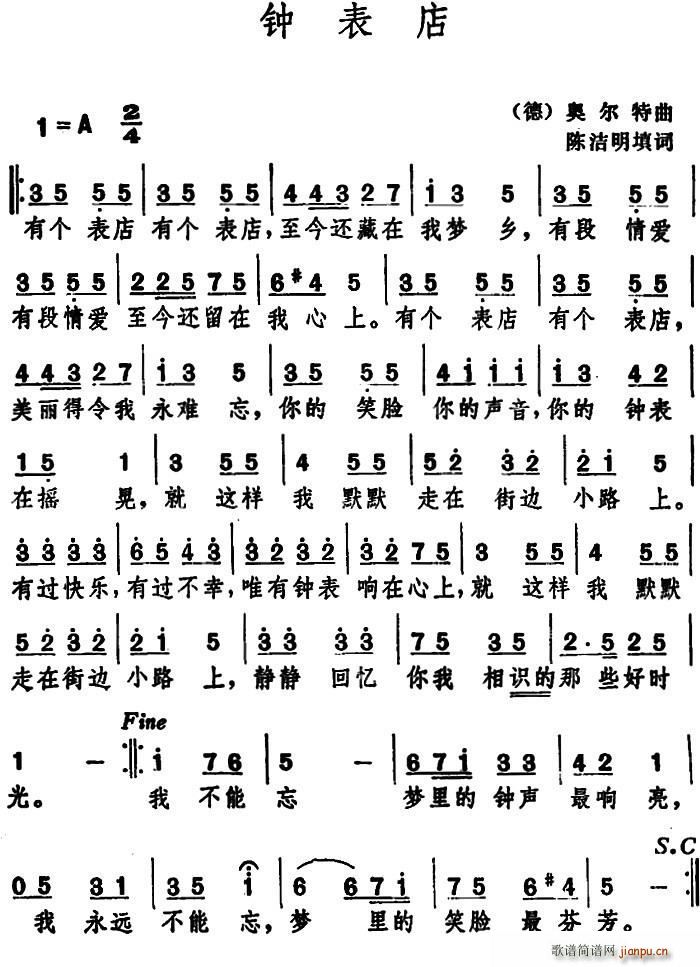 钟表店
1=A 2/4
（德）奥尔特曲
陈洁明填词
35 55 | 35 55 | 44327 | i3 5 | 35 55
有个 表店 有个 表店，至今还藏在 我梦 乡，有段 情爱
3555 | 22575 | 6#4 5 | 35 55 | 35 55
有段情爱 至今还留在 我 心上。有个 表店 有个 表店，
44327 | i3 5 | 35 55 | 4iii | i3 42
美丽得令我 永难 忘，你的 笑脸 你的声音，你的 钟表
15 1 | 3 55 | 4 55 | 52 32 | 2i 5
在摇 晃，就 这样 我 默默 走在 街边 小路 上。
3333 | 6543 | 3232 | 3275 | 3 55 | 4 55
有过快乐，有过不幸，唯有钟表 响在心上，就 这样 我 默默
5232 | 2i 5 | 33 33 | 75 35 | 2·525
走在街边 小路 上，静静 回忆 你我 相识的那 些好时
Fine
1 － :||: i 76 | 5 － | 67i 33 | 42 1
光。 我 不能 忘 梦里的 钟声 最响 亮，
S.C
05 31 | 35 i | 6 67i | 75 6#4 | 5 － :||
我 永远 不能 忘，梦 里的 笑脸 最 芬 芳。
歌谱简谱网
jianpu.cn